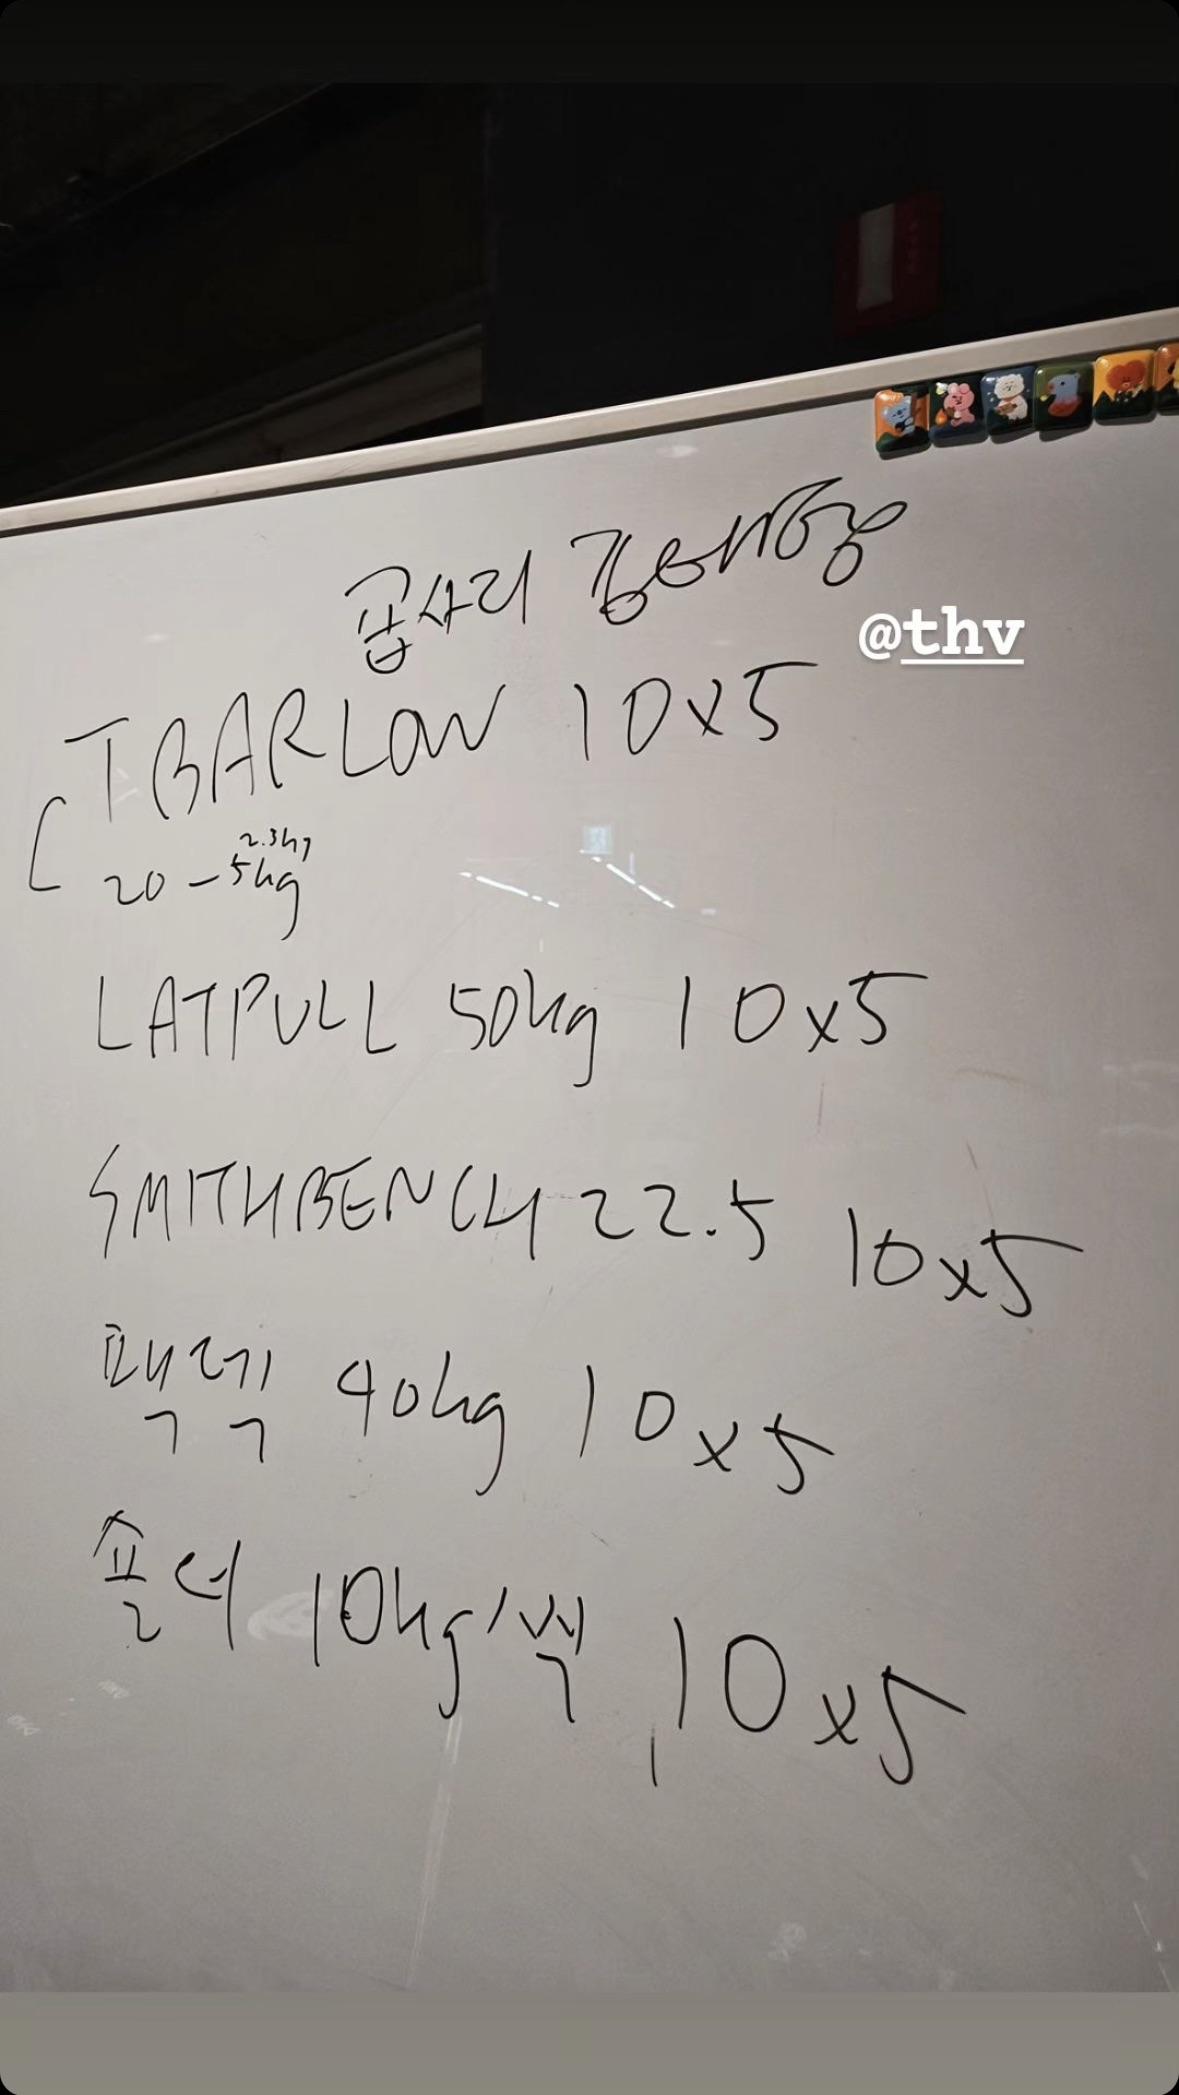 곱사리 김태형
@thv
TBARLOW 10x5
2.3kg
20-5kg
LATPULL 50kg 10x5
SMITHBENCH 22.5 10x5
팩덱 40kg 10x5
숄더 10kg씩 10x5